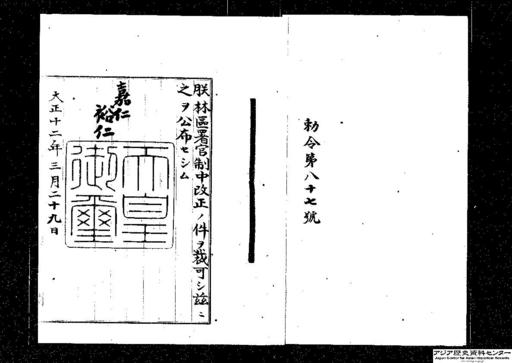 勅令第八十七號
朕林區署官制中改正ノ件ヲ裁可シ玆ニ
之ヲ公布セシム
嘉仁
裕仁
天皇
御璽
大正十二年三月二十九日
アジア歴史資料センター
Japan Center for Asian Historical Records